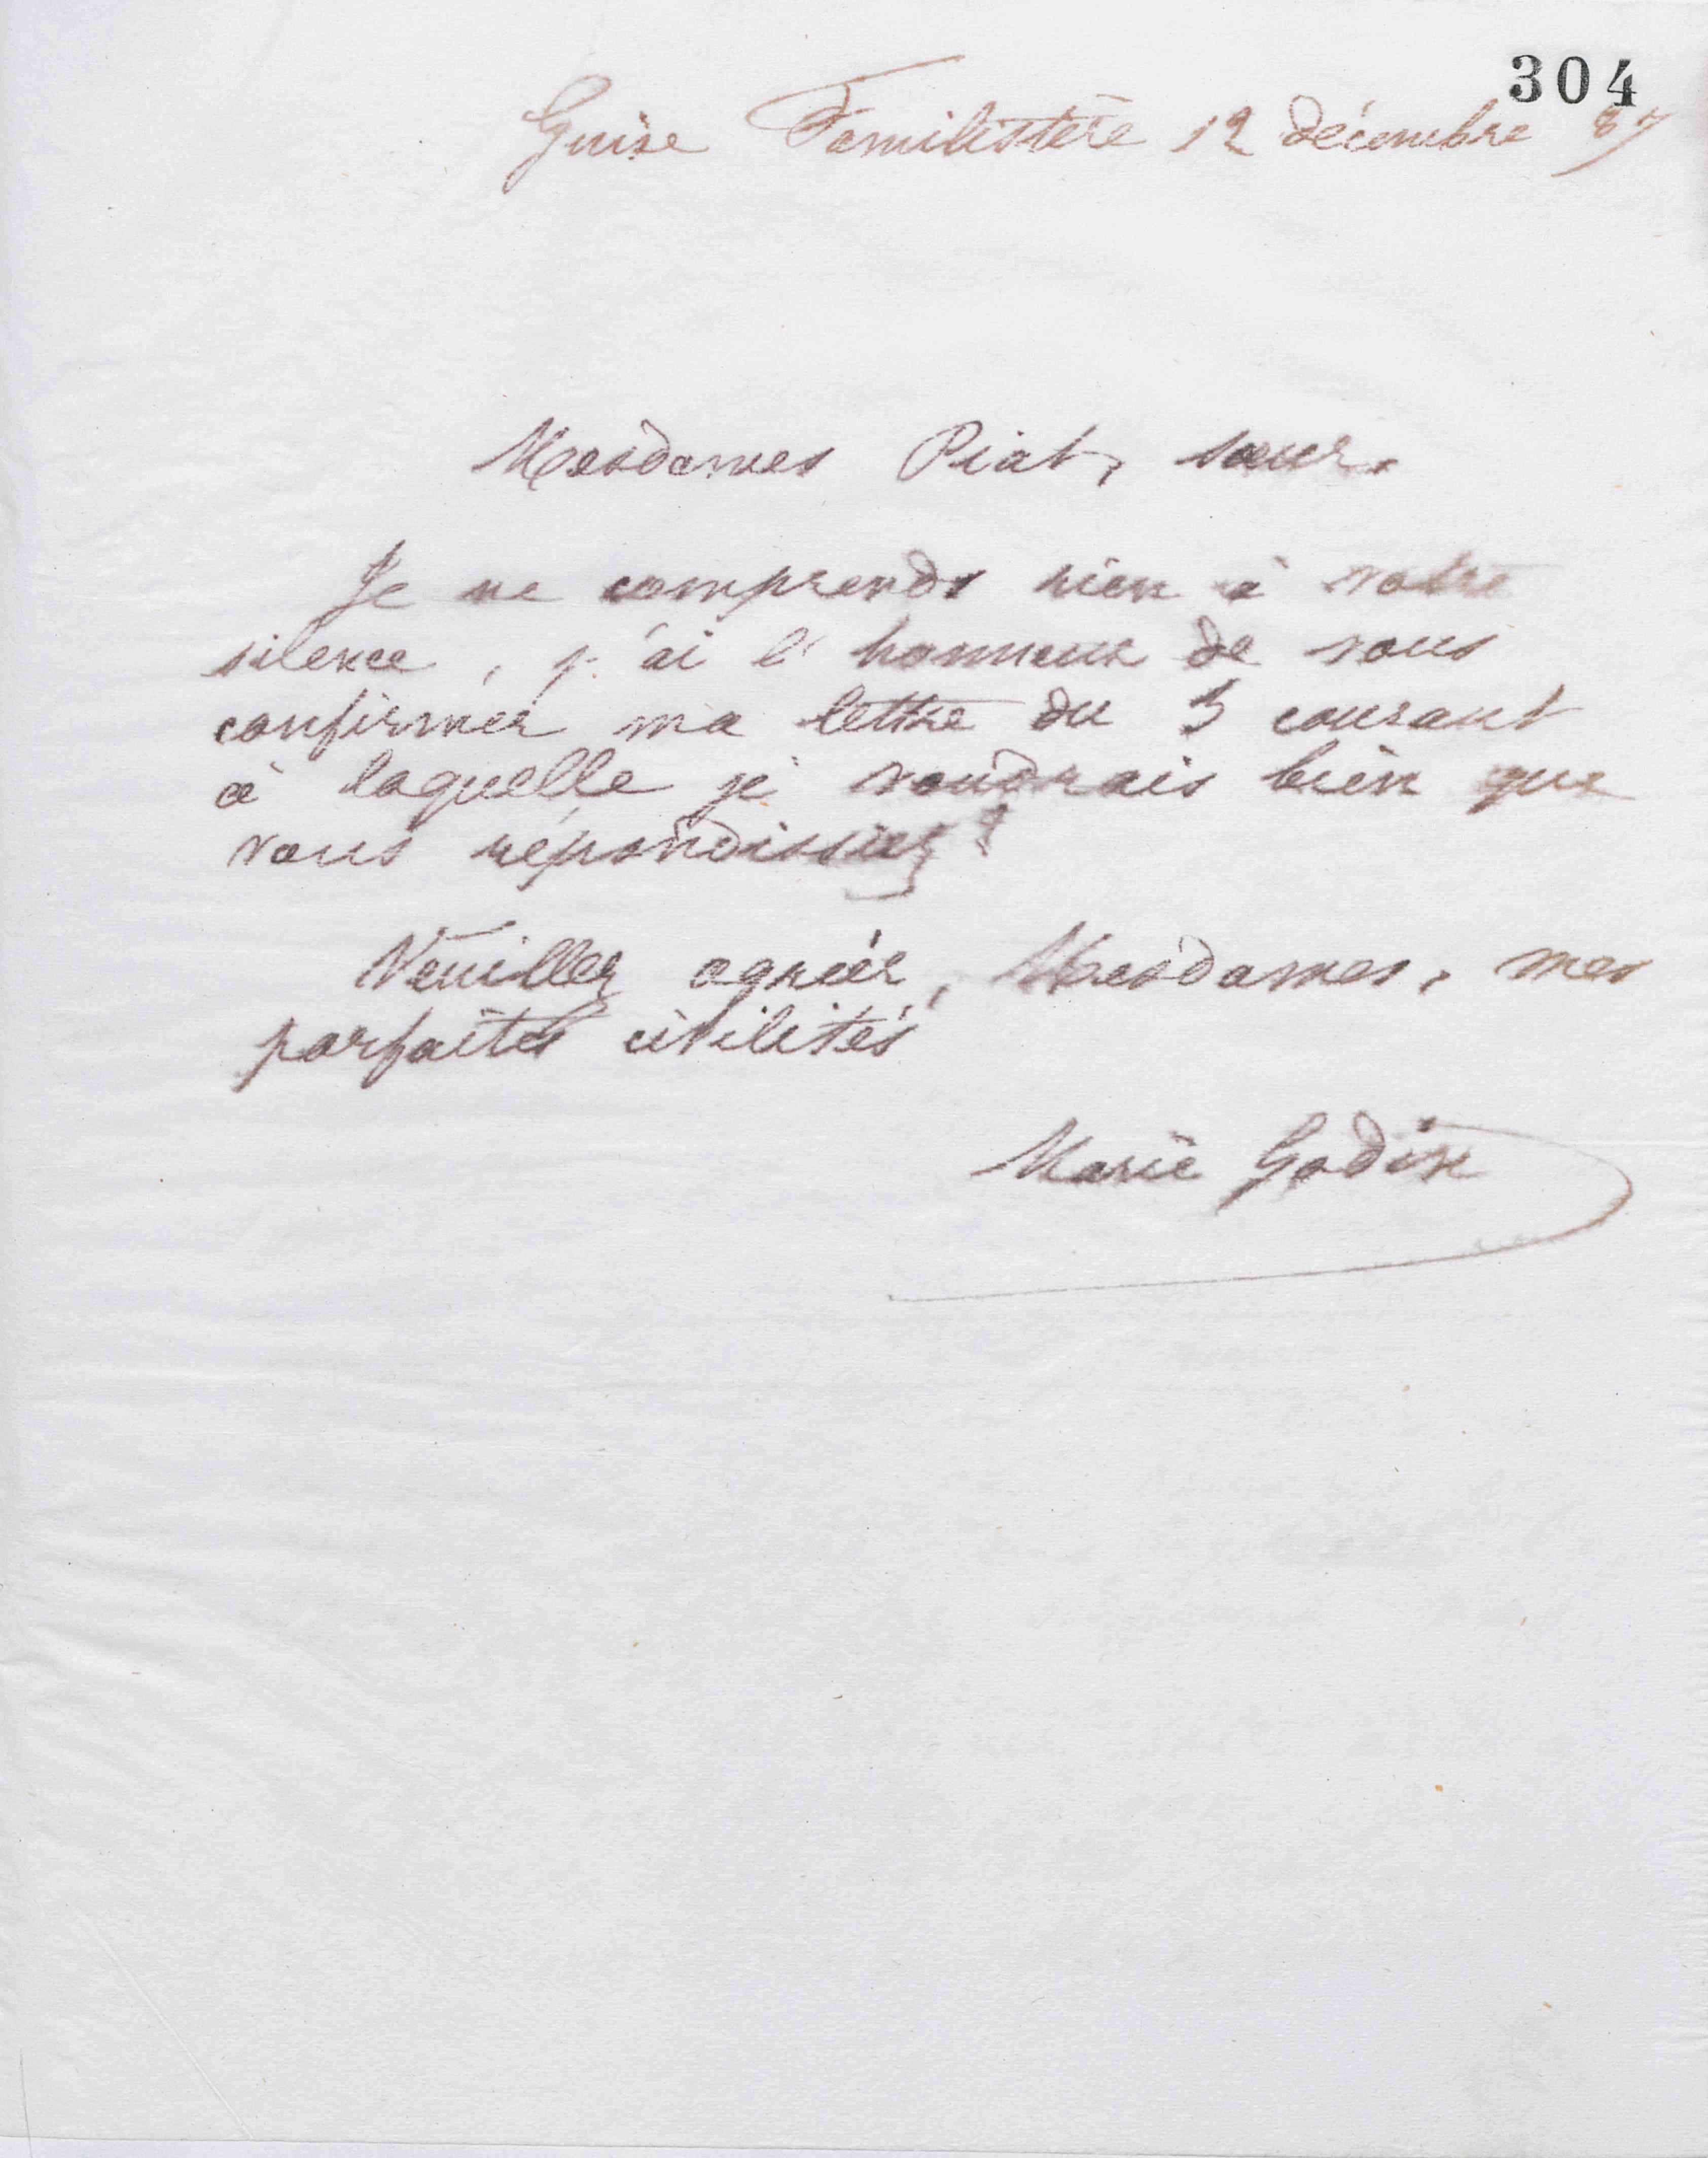 304
Guise Familistère 12 décembre 87
Mesdames Piat, sœur.
Je ne comprends rien à votre
silence, j'ai l'honneur de vous
confirmer ma lettre du 5 courant
à laquelle je voudrais bien que
vous répondissiez ?
Veuillez agréer, Mesdames, mes
parfaites civilités
Marie Godin